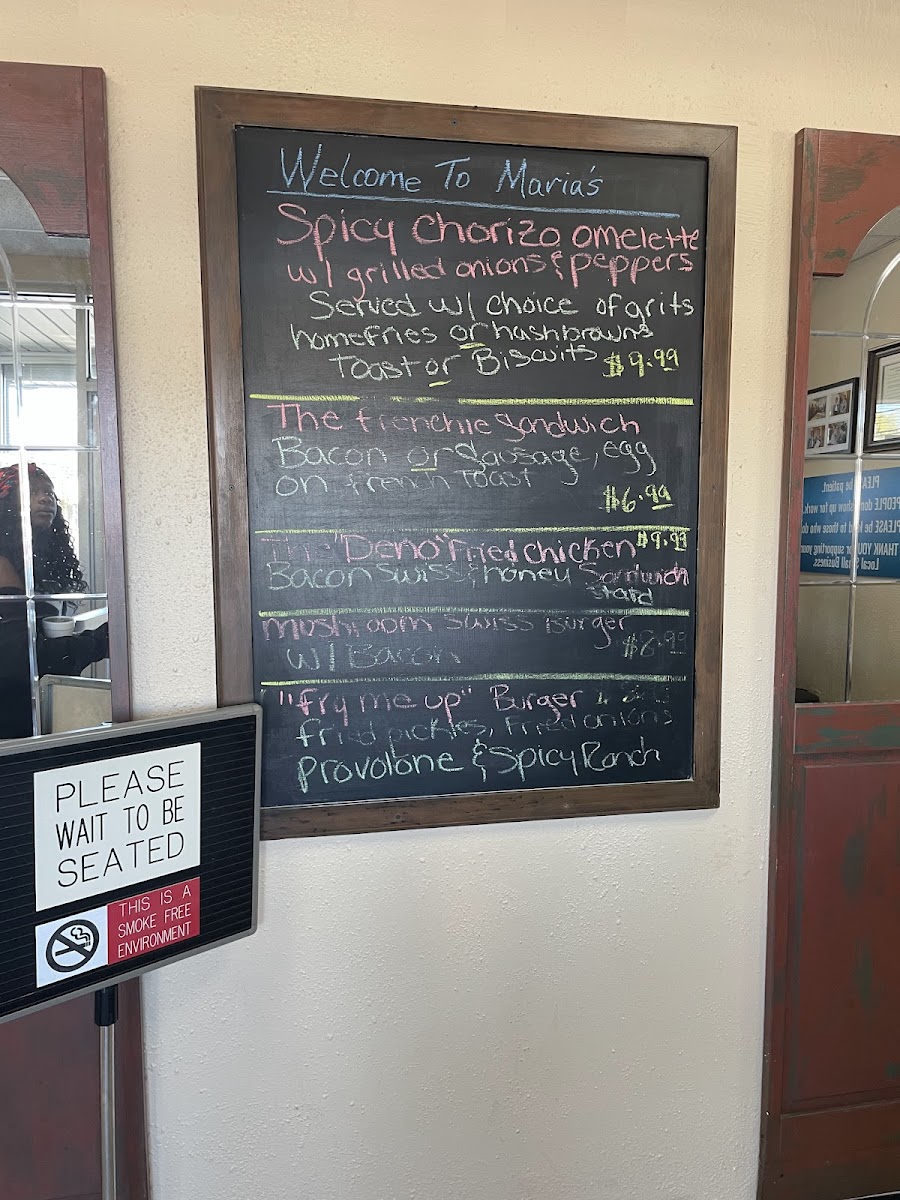 Welcome To Maria's
Spicy Chorizo omelette
w/ grilled onions & peppers
Served w/ choice of grits
homefries or hashbrowns
Toast or Biscuits $9.99
The frenchie Sandwich
Bacon or Sausage, egg
on french Toast
$6.99
The "Deno" Fried chicken $9.99
Bacon Swiss & honey Sandwich
stard
mushroom Swiss Burger
w/ Bacon $8.99
"fry me up" Burger
fried pickles, fried onions
Provolone & Spicy Ranch
PLEASE
WAIT TO BE
SEATED
THIS IS A
SMOKE FREE
ENVIRONMENT
PLEASE be patient.
PEOPLE don't show up for work.
PLEASE be kind to those who do
THANK YOU for supporting your
Local Small Business.